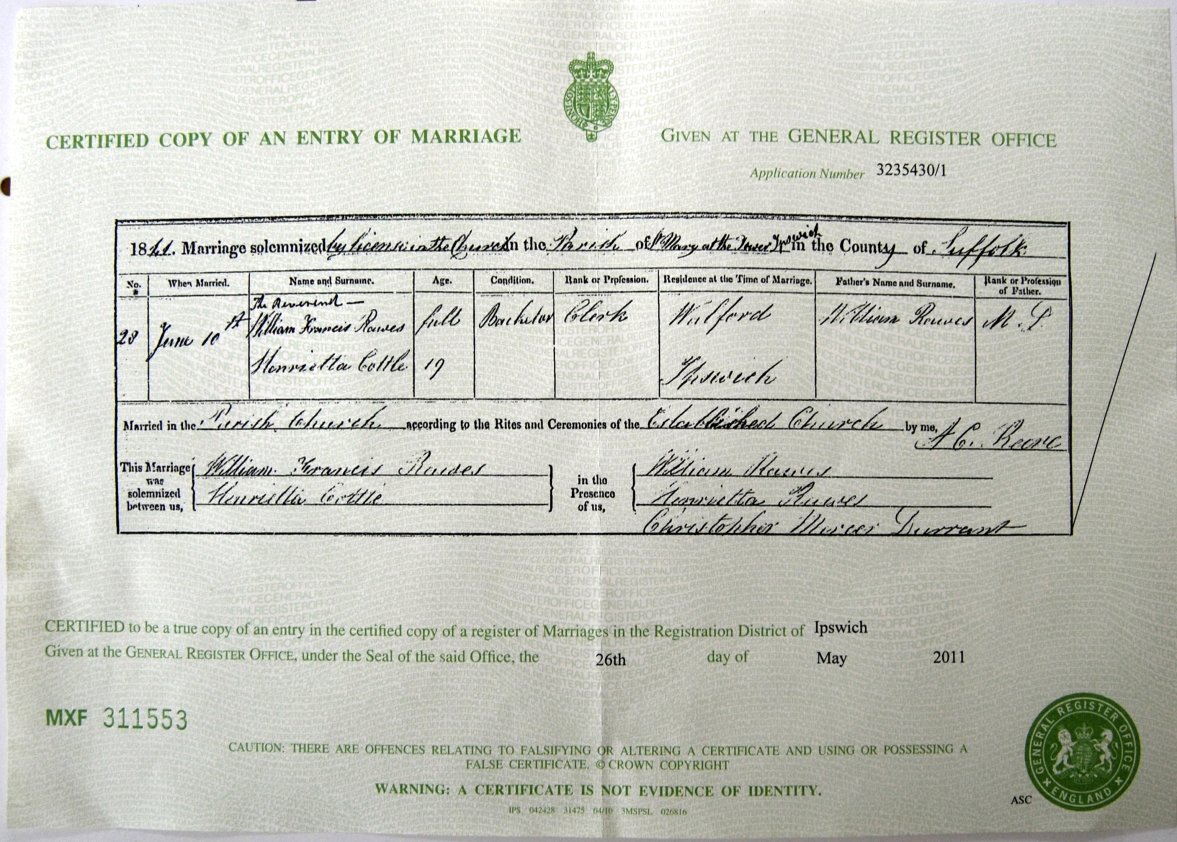 CERTIFIED COPY OF AN ENTRY OF MARRIAGE
GIVEN AT THE GENERAL REGISTER OFFICE
Application Number 3235430/1
18 Marriage solemnized by licence in the Church in the Parish of St Mary at the Tower Ipswich in the County of Suffolk
No. When Married. Name and Surname. Age. Condition. Rank or Profession. Residence at the Time of Marriage. Father's Name and Surname. Rank or Profession of Father.
The Reverend —
23 June 10 William Francis Rawes full Bachelor Clerk Walford William Rawes
Henrietta Cottle 19 Ipswich
Married in the Parish Church according to the Rites and Ceremonies of the Established Church by me,
This Marriage was solemnized between us, William Francis Rawes
Henrietta Cottle
in the Presence of us, William Rawes
Henrietta Rawes
Christopher Mercer Durrant
CERTIFIED to be a true copy of an entry in the certified copy of a register of Marriages in the Registration District of Ipswich
Given at the GENERAL REGISTER OFFICE, under the Seal of the said Office, the 26th day of May 2011
MXF 311553
CAUTION: THERE ARE OFFENCES RELATING TO FALSIFYING OR ALTERING A CERTIFICATE AND USING OR POSSESSING A
FALSE CERTIFICATE. © CROWN COPYRIGHT
WARNING: A CERTIFICATE IS NOT EVIDENCE OF IDENTITY.
IPS 042428 31475 04/10 3MSPSL 026816
GENERAL REGISTER OFFICE
ENGLAND
ASC